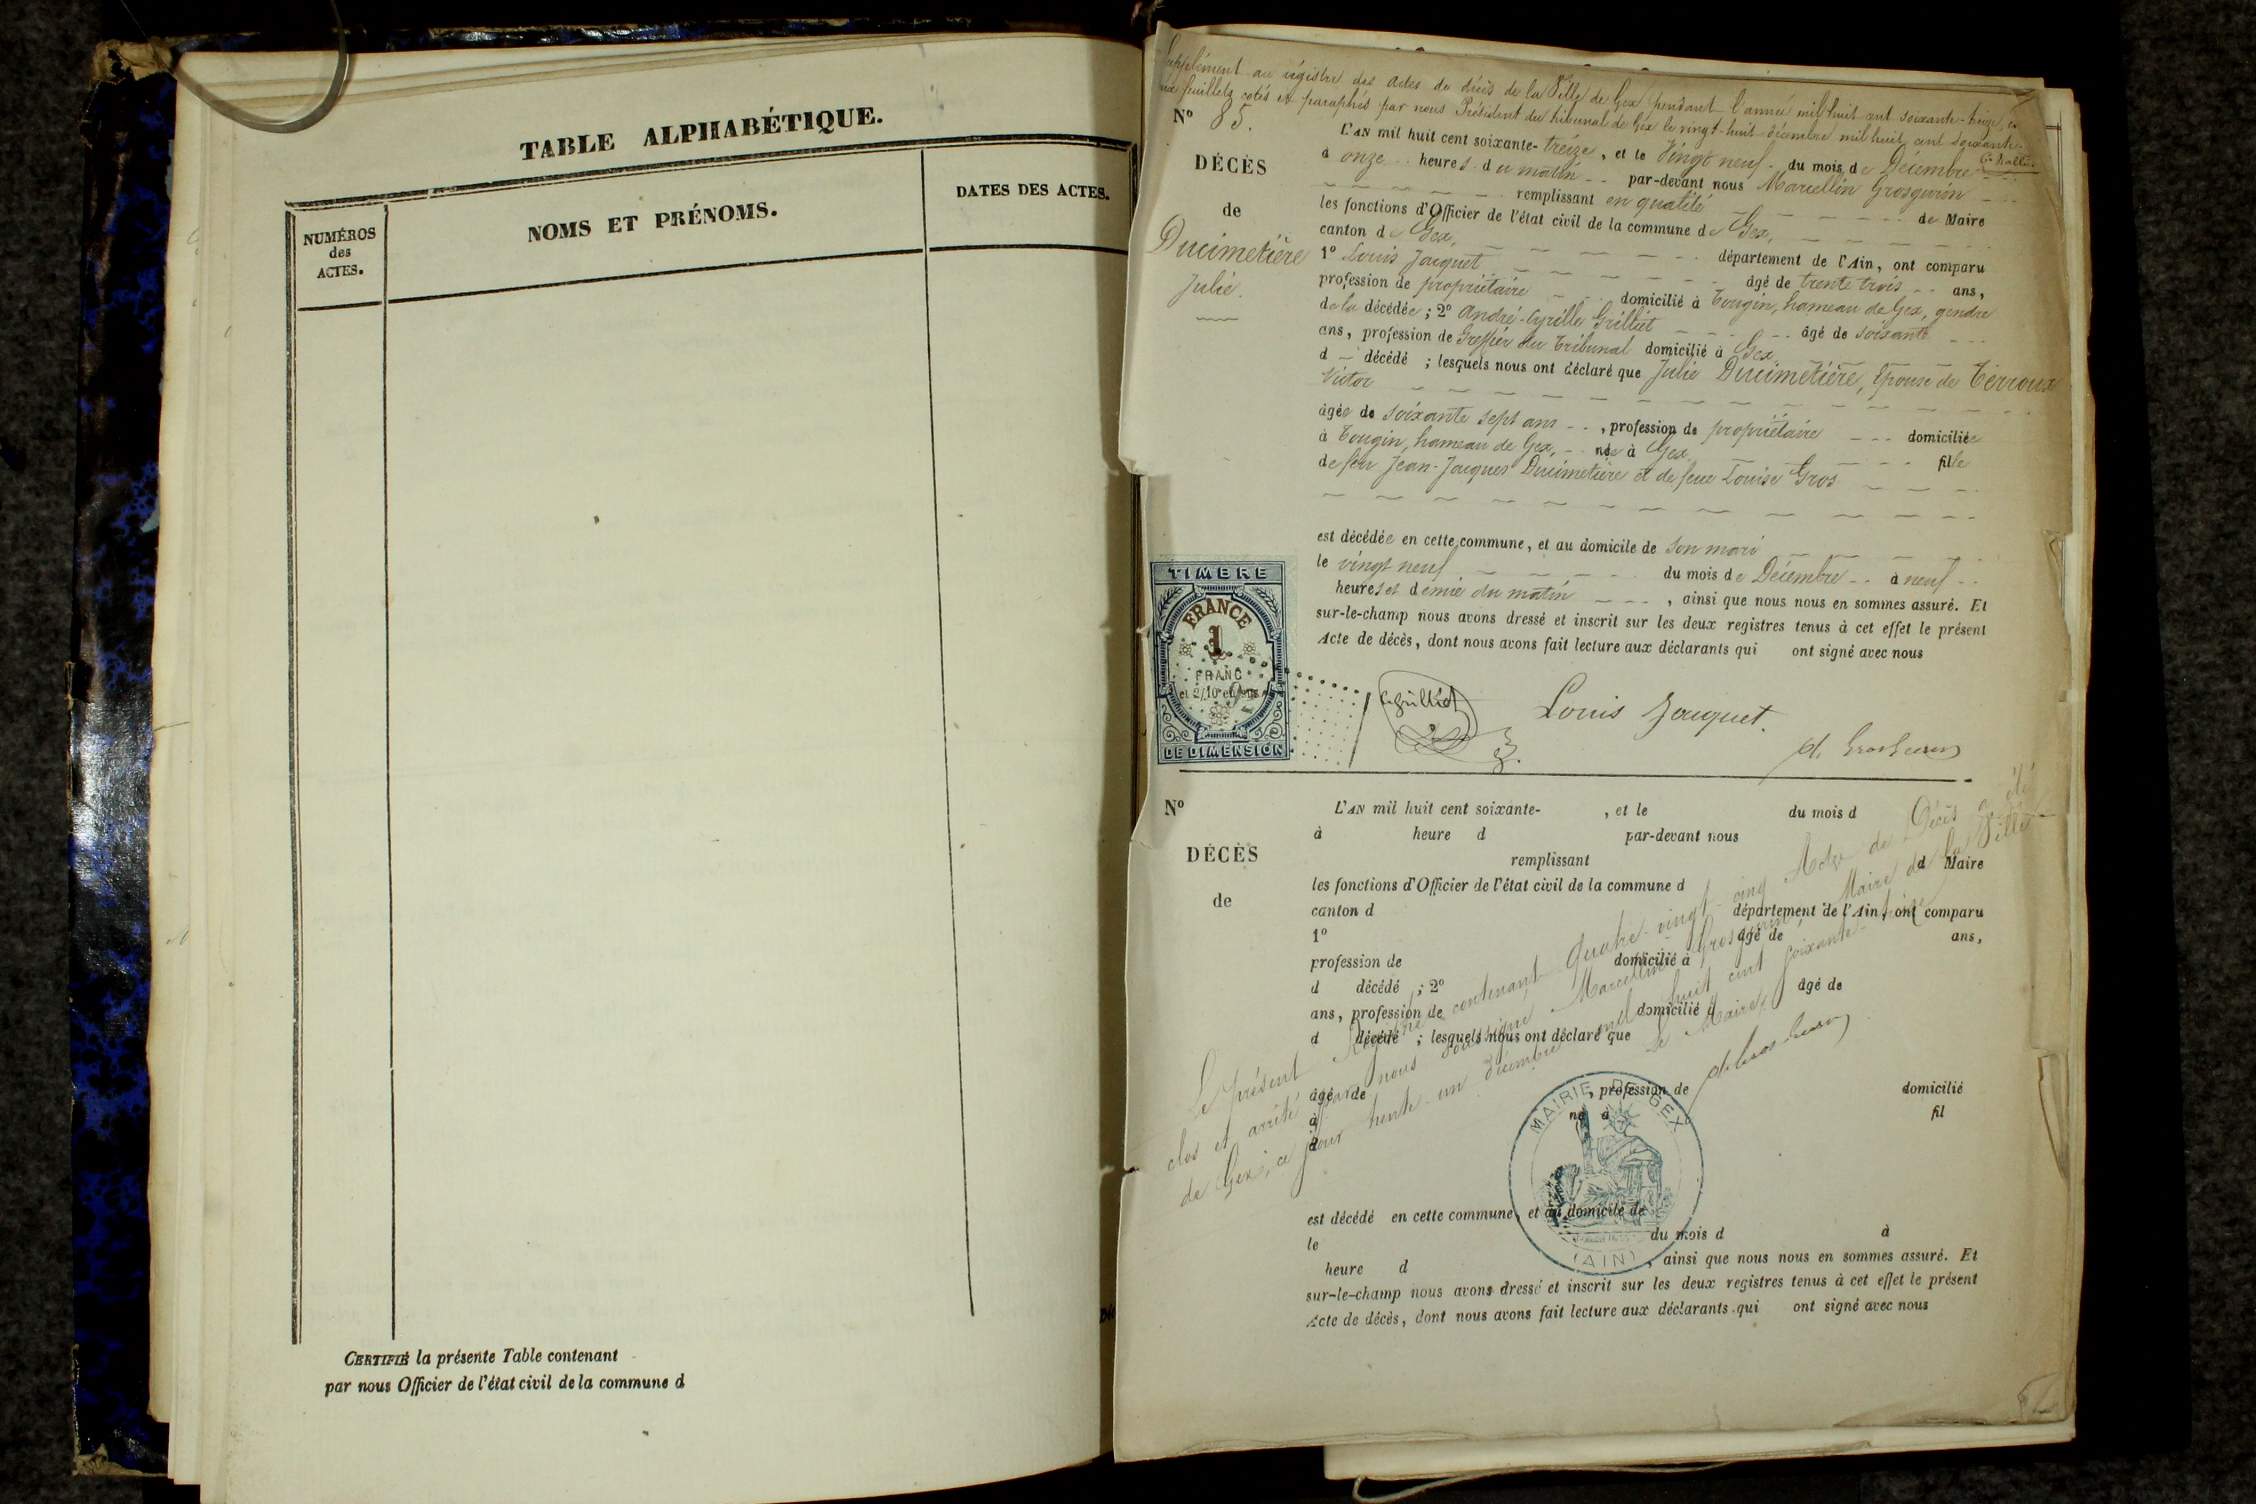 TABLE ALPHABÉTIQUE.
NUMÉROS
des
ACTES.
NOMS ET PRÉNOMS.
DATES DES ACTES.
CERTIFIÉ la présente Table contenant
par nous Officier de l'état civil de la commune d
Supplément au registre des actes de décès de la Ville de Gex pendant l'année mil huit cent soixante-treize, en
feuillets cotés et paraphés par nous Président du tribunal de Gex le vingt-huit décembre mil huit cent soixante-
Nº 85.
DÉCÈS
de
Ducimetière
Julie.
L'AN mil huit cent soixante-treize, et le Vingt neuf du mois de Décembre
à onze heures du matin par-devant nous Marcellin Grosgurin
remplissant en qualité de Maire
les fonctions d'Officier de l'état civil de la commune de Gex,
canton de Gex, département de l'Ain, ont comparu
1º Louis Jacquet âgé de trente trois ans,
profession de propriétaire domicilié à Tougin, hameau de Gex, gendre
de la décédée ; 2º André-Cyrille Grilliet âgé de soixante
ans, profession de Greffier du Tribunal domicilié à Gex
d décédé ; lesquels nous ont déclaré que Julie Ducimetière, épouse de Terroux
Victor
âgée de soixante sept ans, profession de propriétaire domiciliée
à Tougin, hameau de Gex, née à Gex fille
de feu Jean-Jacques Ducimetière et de feue Louise Gros
est décédée en cette commune, et au domicile de son mari
le vingt neuf du mois de Décembre à neuf
heures et demie du matin, ainsi que nous nous en sommes assuré. Et
sur-le-champ nous avons dressé et inscrit sur les deux registres tenus à cet effet le présent
Acte de décès, dont nous avons fait lecture aux déclarants qui ont signé avec nous
TIMBRE
FRANCE
1
FRANC
et 2/10 en sus
DE DIMENSION
Louis Jacquet.
Nº
DÉCÈS
de
L'AN mil huit cent soixante- , et le du mois d
à heure d par-devant nous
remplissant d Maire
les fonctions d'Officier de l'état civil de la commune d
canton d département de l'Ain, ont comparu
1º âgé de ans,
profession de domicilié à
d décédé ; 2º âgé de
ans, profession de domicilié à
d décédé ; lesquels nous ont déclaré que
âgé de , profession de domicilié
à né à fil
d
est décédé en cette commune, et au domicile de
le du mois d à
heure d , ainsi que nous nous en sommes assuré. Et
sur-le-champ nous avons dressé et inscrit sur les deux registres tenus à cet effet le présent
Acte de décès, dont nous avons fait lecture aux déclarants qui ont signé avec nous
Le présent Registre contenant Quatre-vingt-cinq Actes de Décès a été
clos et arrêté par nous soussigné Marcellin Grosgurin Maire de la Ville
de Gex, ce jour trente un Décembre mil huit cent soixante-treize
Le Maire,
MAIRIE DE GEX
(AIN)